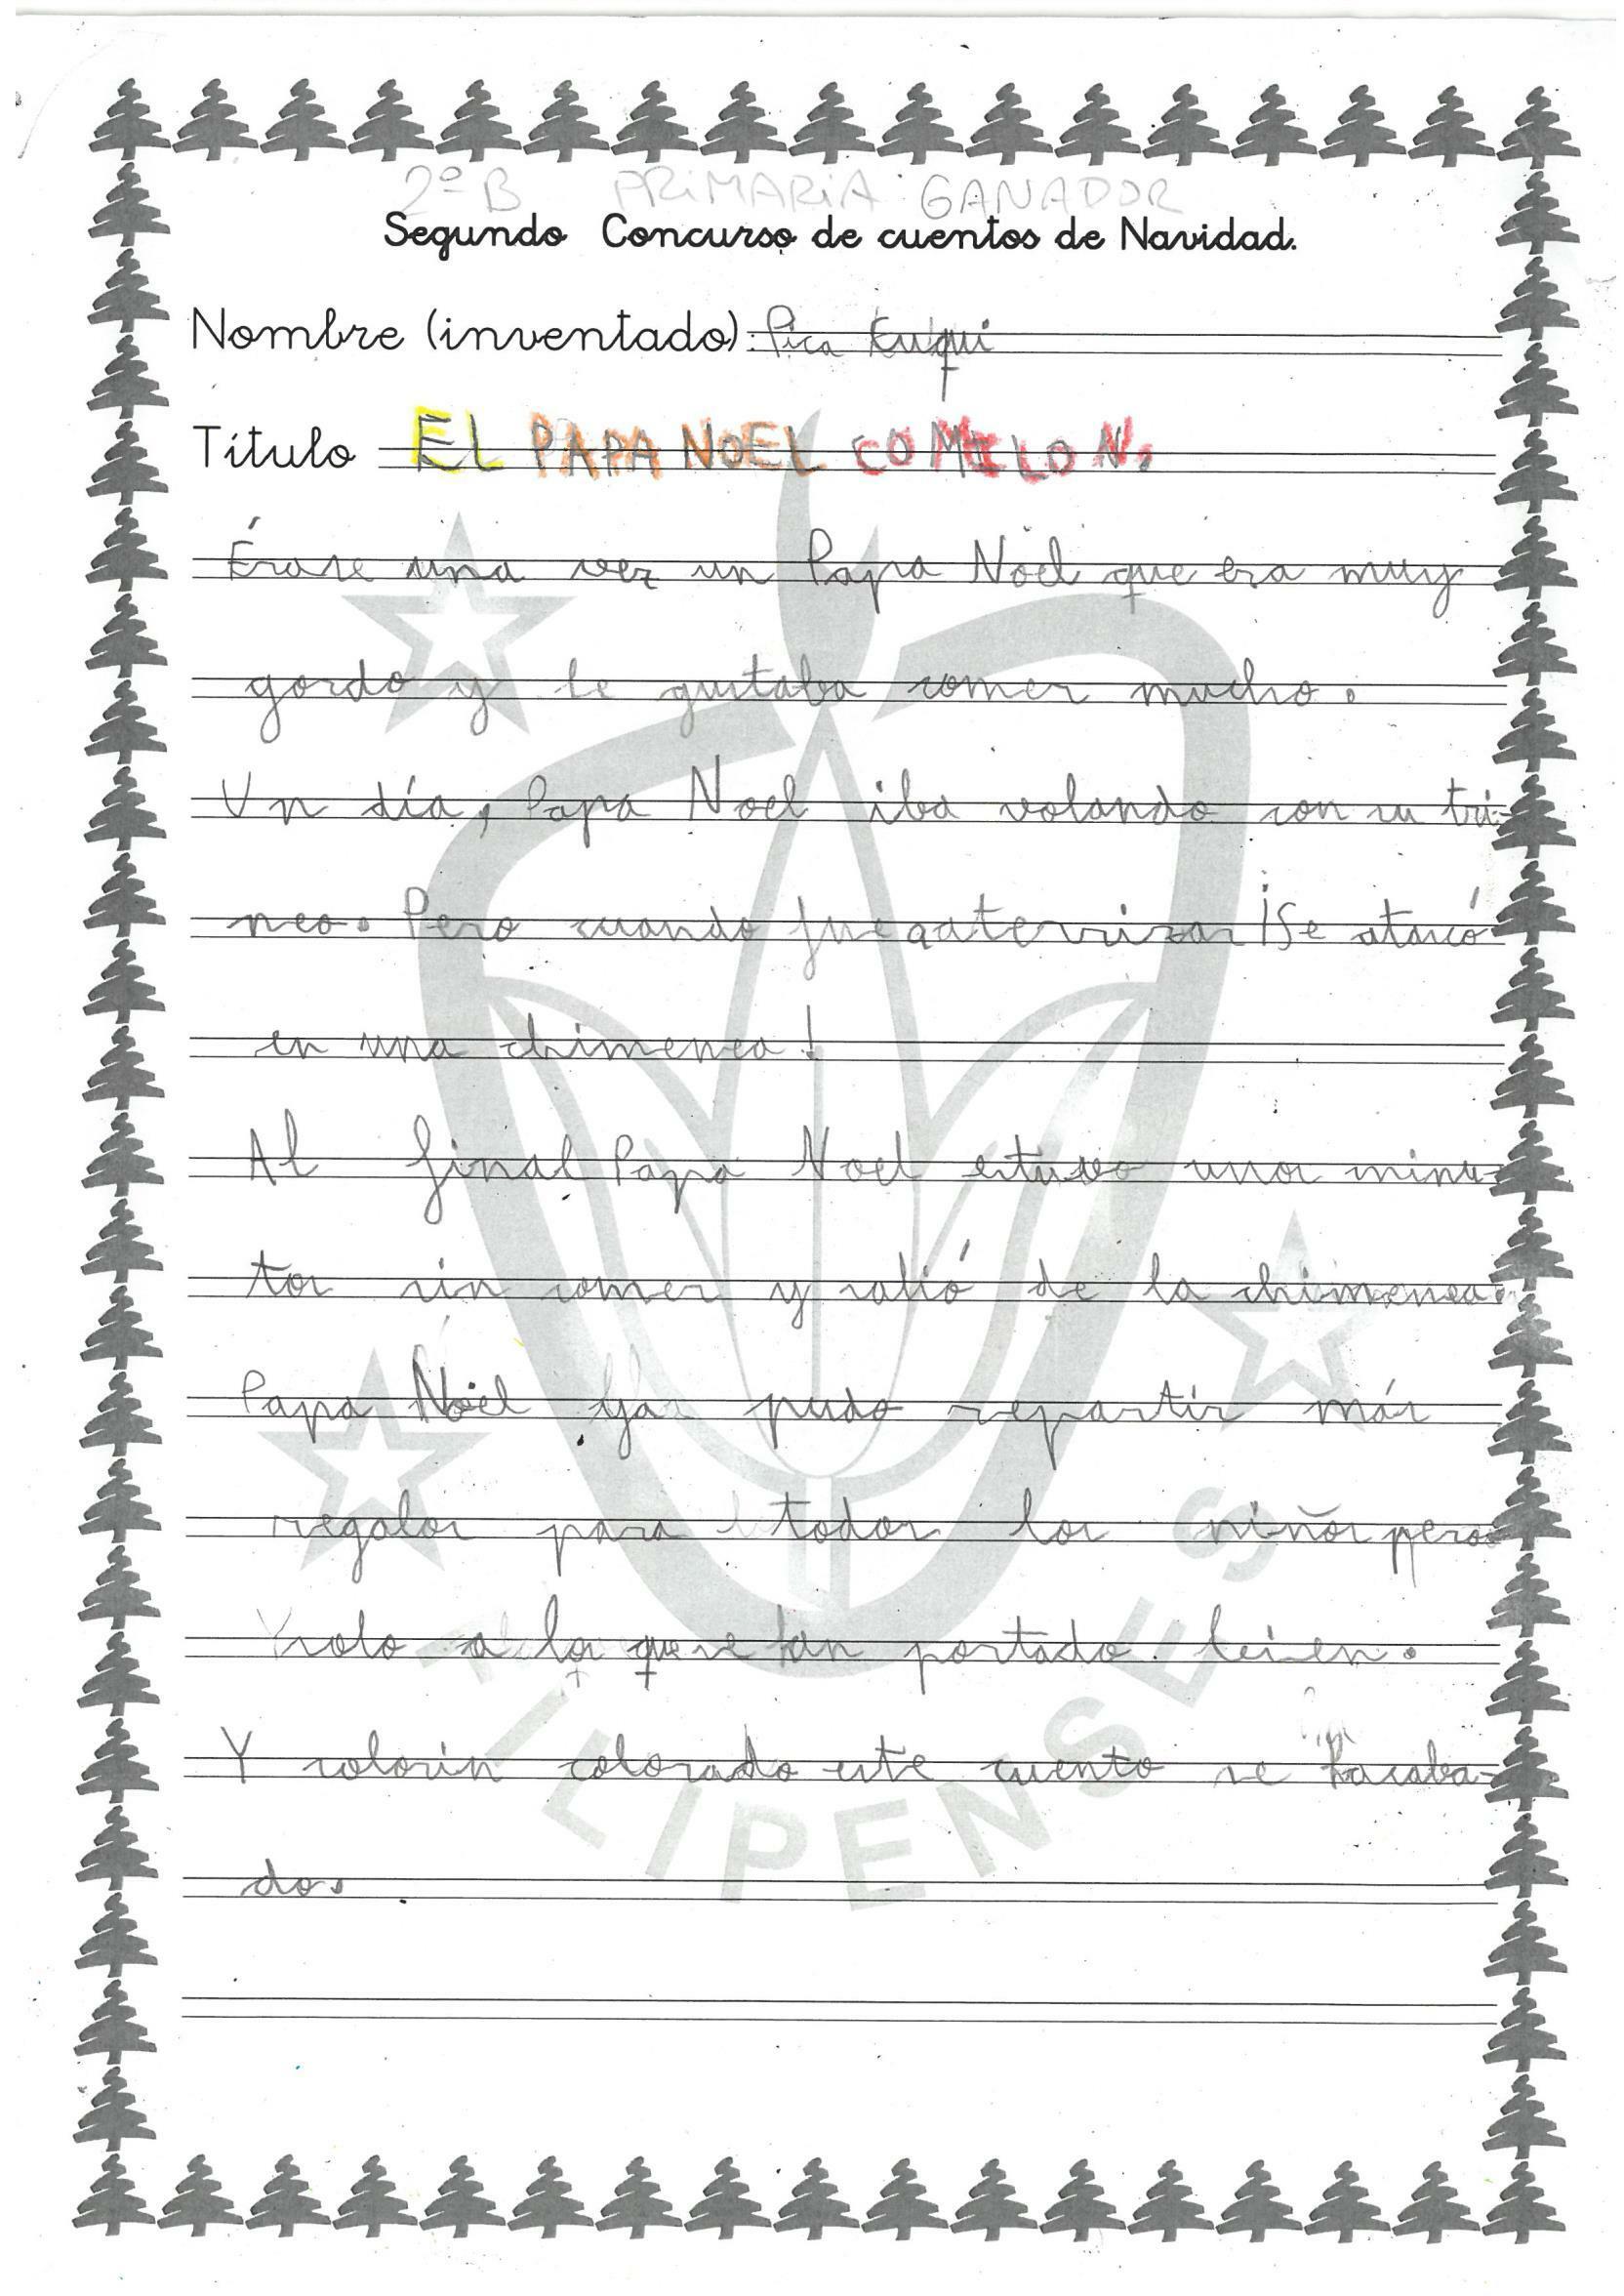 2º B PRIMARIA GANADOR
Segundo Concurso de cuentos de Navidad.
Nombre (inventado): Pica Kuqui
Título EL PAPA NOEL COMILON.
Érase una vez un Papa Noel que era muy
gordo y le gustaba comer mucho.
Un día, Papa Noel iba volando con su tri-
neo. Pero cuando fue aaterrizar ¡Se atascó
en una chimenea!
Al final Papa Noel estuvo unos minu-
tos sin comer y salió de la chimenea.
Papa Noel Ya pudo repartir más
regalos para todos los niños pero
solo a los que se han portado bien.
Y colorín colorado este cuento se hacaba-
do.
FILIPENSES